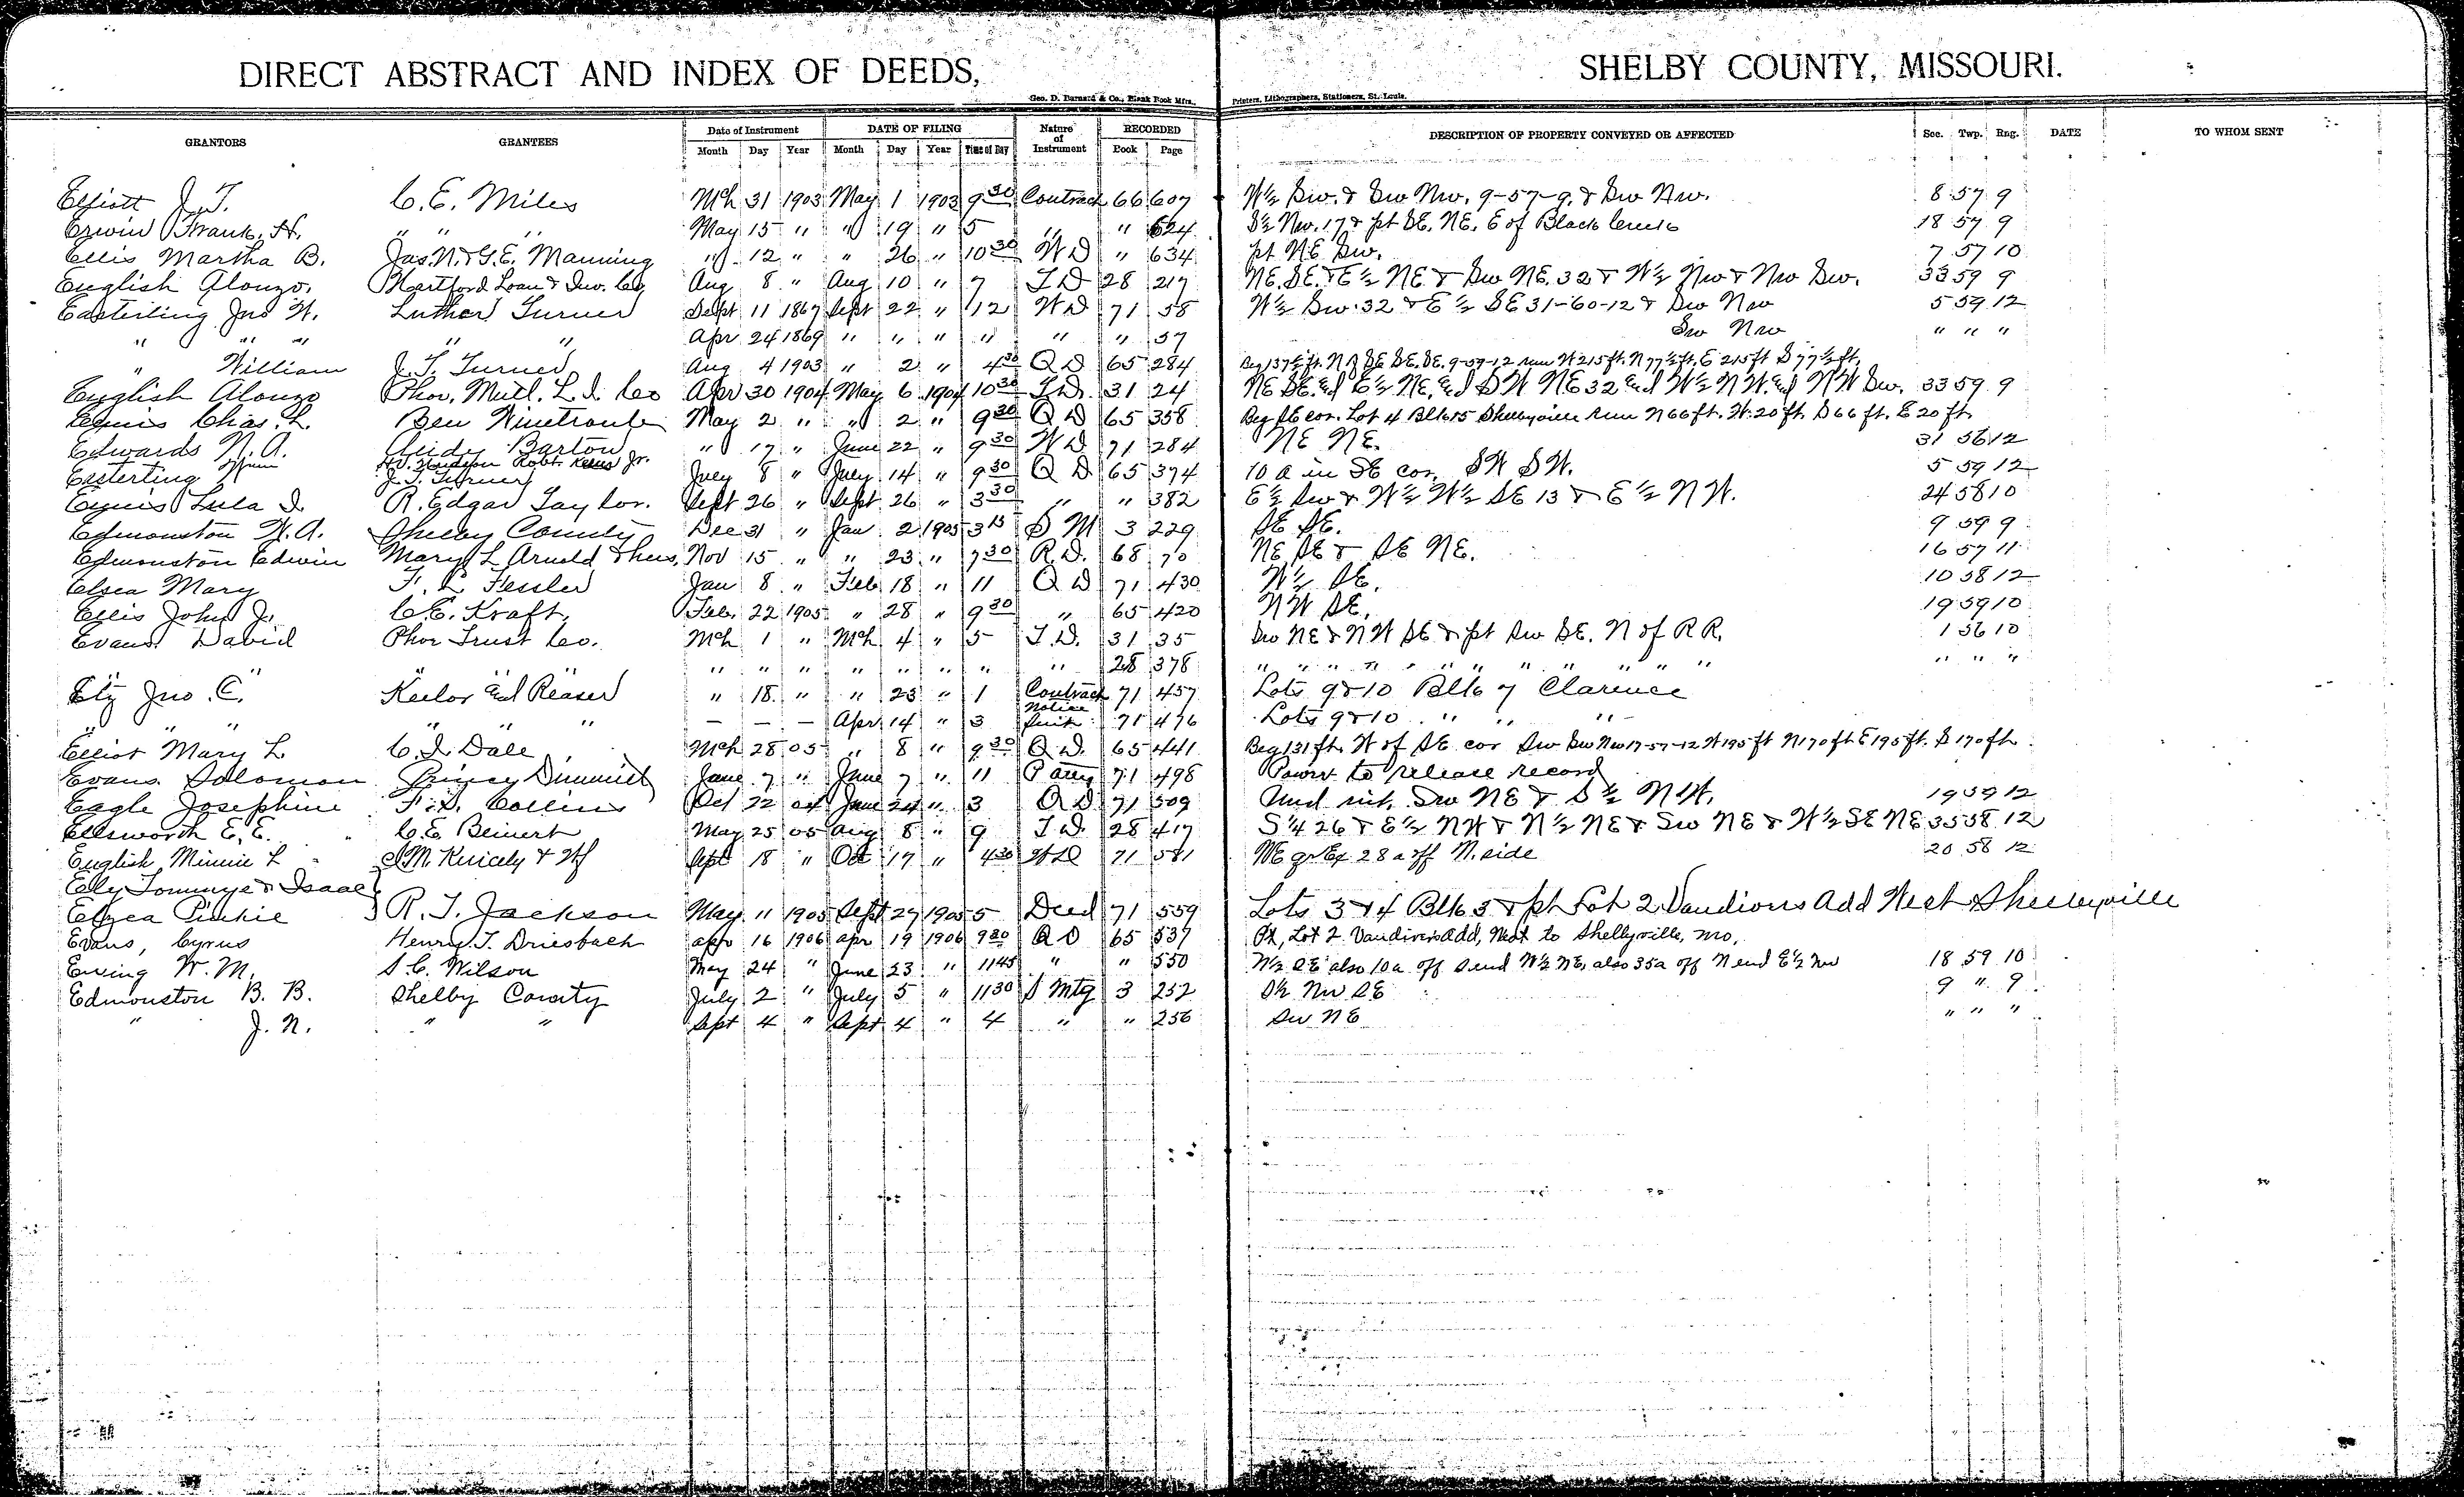 DIRECT ABSTRACT AND INDEX OF DEEDS, SHELBY COUNTY, MISSOURI.
Geo. D. Barnard & Co., Blank Book Mfrs., Printers, Lithographers, Stationers, St. Louis.
GRANTORS GRANTEES Date of Instrument DATE OF FILING Nature of Instrument RECORDED DESCRIPTION OF PROPERTY CONVEYED OR AFFECTED Sec. Twp. Rng. DATE TO WHOM SENT
Month Day Year Month Day Year Time of Day Book Page
Elliott J. T. C. E. Miles Mch 31 1903 May 1 1903 9 30 Contract 66 607 W½ Sw. & Sw Nw. 9-57-9. & Sw Nw. 8 57 9
Erwin Frank. H. " " " May 15 " " 19 " 5 " " 624 S½ Nw. 17 & pt SE. NE. E of Black Creek 18 57 9
Ellis Martha B. Jas. N. & G. E. Manning " 12 " " 26 " 10 30 W D " 634 pt NE Sw. 7 57 10
English Alonzo. Hartford Loan & Inv. Co Aug 8 " Aug 10 " 7 T D 28 217 NE. SE. & E½ NE & Sw NE. 32 & W½ Nw & Nw Sw. 33 59 9
Easterling Jno W. Luther Turner Sept 11 1867 Sept 22 " 12 W D 71 58 W½ Sw. 32 & E½ SE 31-60-12 & Sw Nw 5 59 12
" " " " " Apr 24 1869 " " " " " " 57 Sw Nw " " "
" William J. T. Turner Aug 4 1903 " 2 " 4 30 Q D 65 284 Beg 137½ ft. N of SE SE. SE. 9-59-12 run W 215 ft. N 77½ ft. E 215 ft S 77½ ft.
English Alonzo Phoe. Mutl. L. I. Co Apr 30 1904 May 6 1904 10 30 T. D. 31 24 NE SE. and E½ NE. and S W NE 32 and W½ N W. and N W Sw. 33 59 9
Ennis Chas. L. Ben May 2 " " 2 " 9 30 Q D 65 358 Beg SE cor. Lot 4 Blk 15 Shelbyville run N 66 ft. W. 20 ft. S 66 ft. E 20 ft.
Edwards N. A. Andy Barton " 17 " June 22 " 9 30 W D 71 284 NE NE. 31 56 12
Easterling J. T. Turner July 8 " July 14 " 9 30 Q D 65 374 10 a in SE cor. S W S W. 5 59 12
Ennis Lula I. R. Edgar Taylor. Sept 26 " Sept 26 " 3 30 " " 382 E½ Sw & W½ W½ SE 13 & E½ N W. 24 58 10
Edmonston W. A. Shelby County Dec 31 " Jan 2 1905 3 15 S M 3 229 SE SE. 9 59 9
Edmonston Edwin Mary L Arnold & hus, Nov 15 " " 23 " 7 30 R. D. 68 70 NE SE & SE NE. 16 57 11
Elsea Mary F. L Fessler Jan 8 " Feb 18 " 11 Q D 71 430 W½ SE. 10 58 12
Ellis John J. C. E. Kraft Feb. 22 1905 " 28 " 9 30 " 65 420 N W SE. 19 59 10
Evans David Phoe Trust Co. Mch 1 " Mch 4 " 5 T. D. 31 35 Sw NE & N W SE & pt Sw SE. N of R R. 1 56 10
" " " " " " " " " " " 28 378 " " " " " " " " " " " " " "
Etz Jno. C. Keelor and Reaser " 18 " " 23 " 1 Contract 71 457 Lots 9 & 10 Blk 7 Clarence
" " " " " " — — — Apr. 14 " 3 Notice Suit 71 476 Lots 9 & 10 " " "
Elliot Mary L C. I. Dale Mch 28 05 " 8 " 9 30 Q. D. 65 441 Beg 131 ft. W of SE cor Sw Sw Nw 17-57-12 W 195 ft N 170 ft E 195 ft. S 170 ft.
Evans. Solomon Quincy Dimmitt June 7 " June 7 " 11 P atty 71 498 Power to release record
Eagle Josephine F. D. Collins Oct 22 04 June 24 " 3 Q D 71 509 Und int. Sw NE & S½ N W. 19 59 12
Ellsworth E. E. C. E. Beinert May 25 05 Aug 8 " 9 T D. 28 417 S ¼ 26 & E½ N W & N½ NE & Sw NE & W½ SE NE 35 58 12
English, Minnie L S. M. Knicely & Wf Sept 18 " Oct 17 " 4 30 W D 71 581 NE qr Ex 28 a off N. side 20 58 12
Ely Tommye & Isaac
Elzea Pinkie R. T. Jackson May. 11 1905 Sept 27 1905 5 Deed 71 559 Lots 3 & 4 Blk 3 & pt Lot 2 Vandivers Add West Shelbyville
Evans, Cyrus Henry T. Driesbach Apr 16 1906 Apr 19 1906 9 30 Q D 65 537 Pt, Lot 2 Vandivers Add, West to Shelbyville, Mo.
Ewing W. M. S. C. Wilson May 24 " June 23 " 11 45 " " 550 W½ SE also 10 a off S end W½ NE, also 35a off N end E½ Nw 18 59 10
Edmonston B. B. Shelby County July 2 " July 5 " 11 30 S Mtg 3 252 S½ Nw SE 9 " 9
" J. N. " " Sept 4 " Sept 4 " 4 " " 256 Sw NE " " "